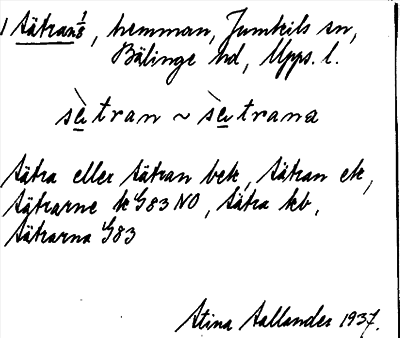 1 Sätran 1/8, hemman, Jumkils sn,
Bälinge hd, Upps. l.
sè̱tran ~ sè̱trana
Sätra eller Sätran bek, Sätran ek,
Sätrarne k G83 NO, Sätra kb,
Sätrarna G83
Stina Sallander 1937.